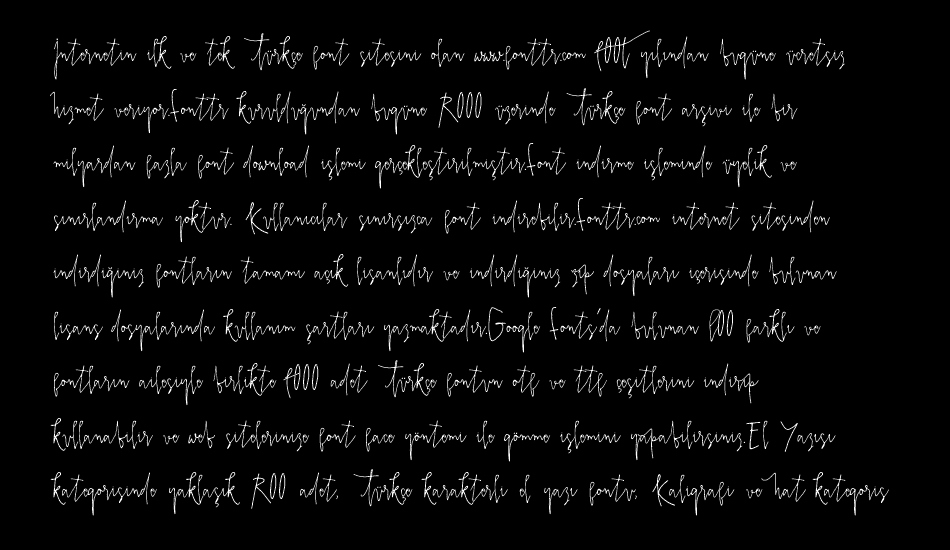 İnternetin ilk ve tek Türkçe font sitesini olan www.fonttr.com yılından bugüne ücretsiz
hizmet veriyor.fonttr kurulduğundan bugüne üzerinde Türkçe font arşivi ile bir
milyardan fazla font download işlemi gerçekleştirilmiştir.font indirme işleminde üyelik ve
sınırlandırma yoktur. Kullanıcılar sınırsızca font indirebilir.fonttr.com internet sitesinden
indirdiğiniz fontların tamamı açık lisanlıdır ve indirdiğiniz zip dosyaları içerisinde bulunan
lisans dosyalarında kullanım şartları yazmaktadır.Google Fonts'da bulunan farklı ve
fontların ailesiyle birlikte adet Türkçe fontun otf ve ttf çeşitlerini indirip
kullanabilir ve web sitelerinize font face yöntemi ile gömme işlemini yapabilirsiniz.El Yazısı
kategorisinde yaklaşık adet, Türkçe karakterli el yazı fontu, Kaligrafi ve hat kategoris